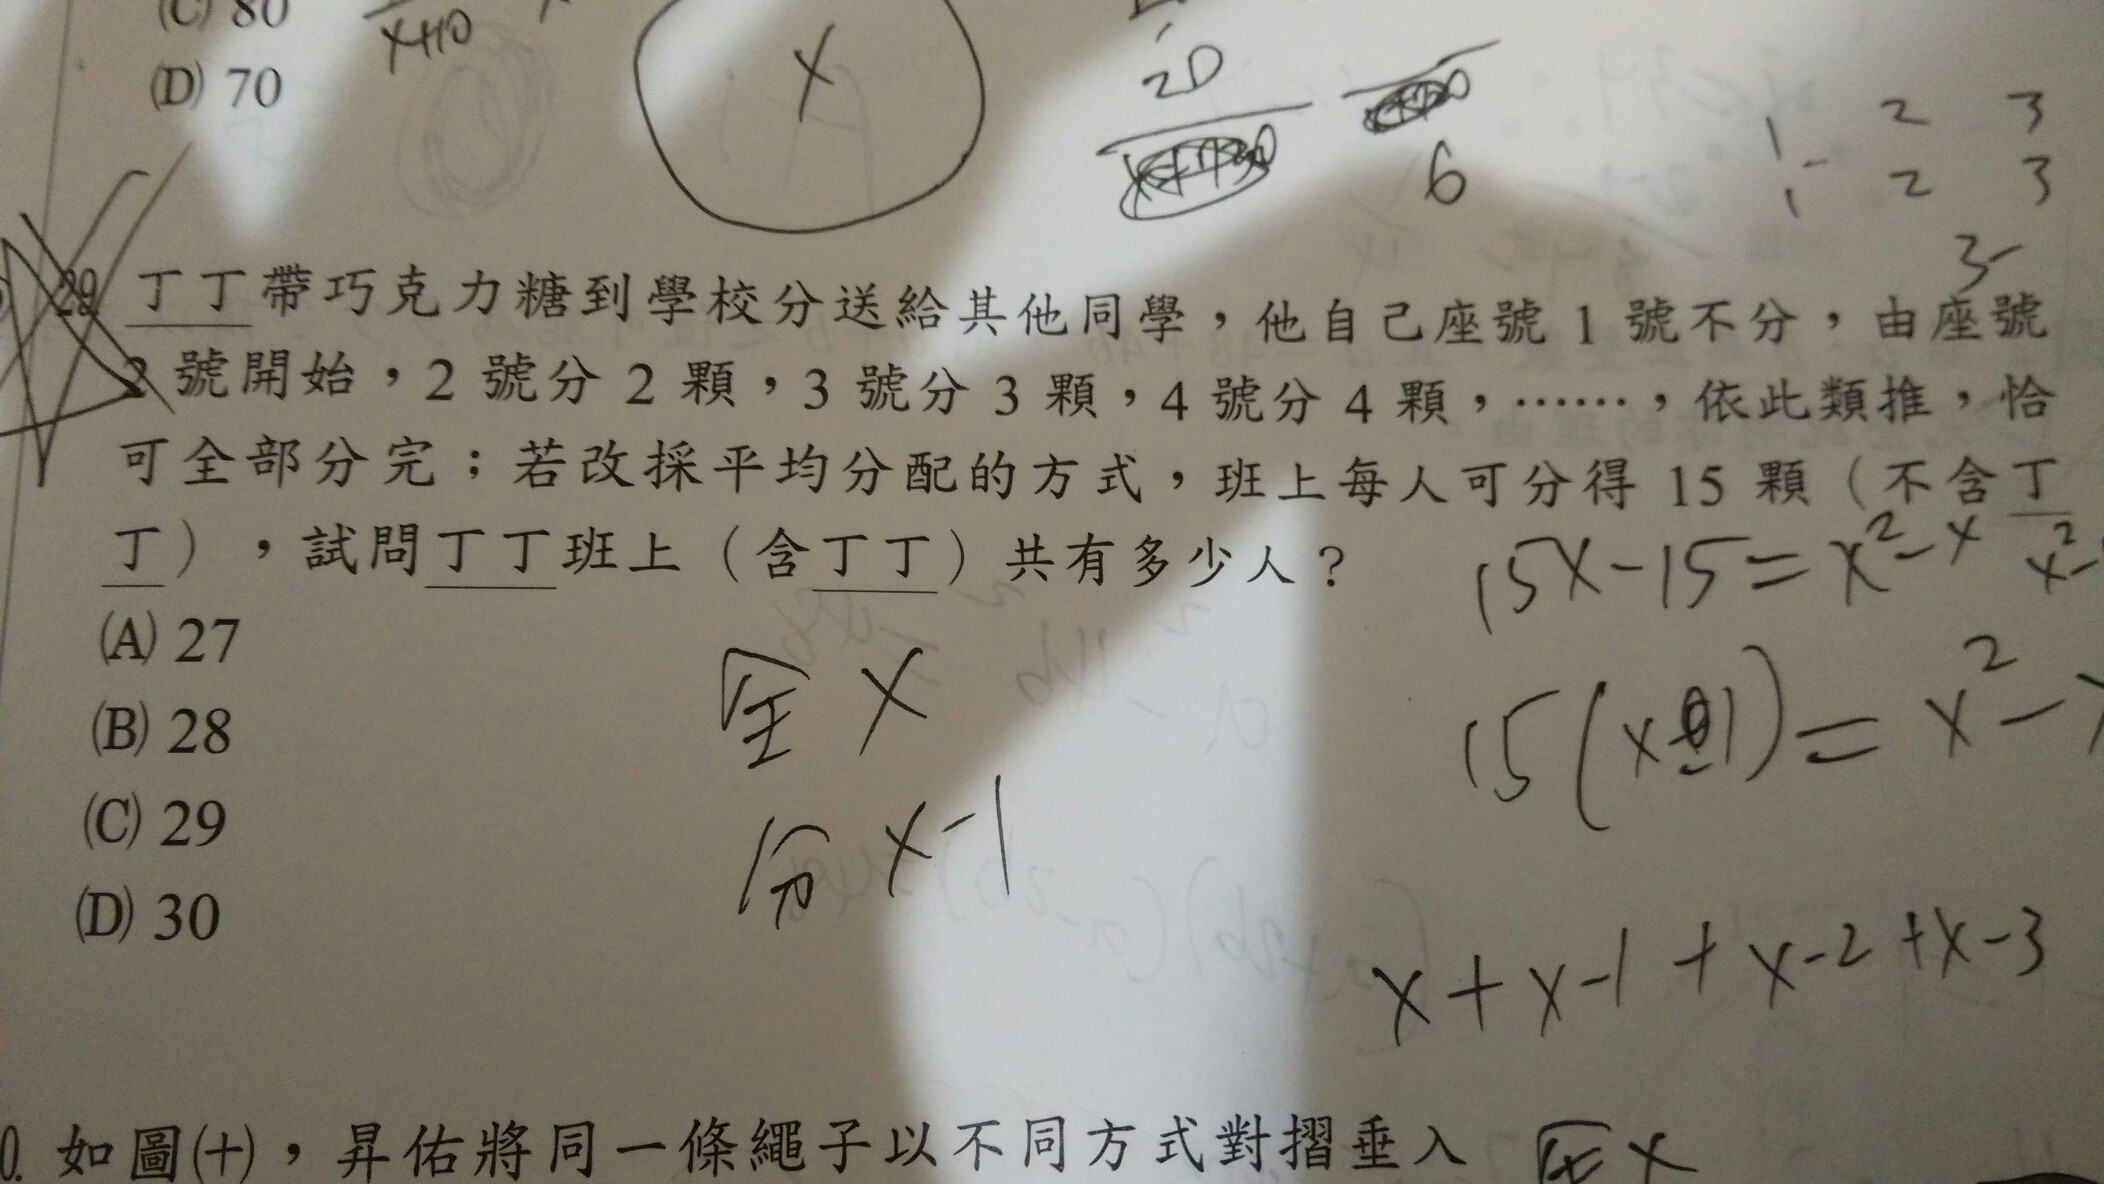 (C) 80
x+10
(D) 70
x
20
6
1 2 3
1 2 3
3
29. 丁丁帶巧克力糖到學校分送給其他同學，他自己座號 1 號不分，由座號
2 號開始，2 號分 2 顆，3 號分 3 顆，4 號分 4 顆，……，依此類推，恰
可全部分完；若改採平均分配的方式，班上每人可分得 15 顆（不含丁
丁），試問丁丁班上（含丁丁）共有多少人？
15x-15=x²-x x²-
(A) 27
全 x
(B) 28
15(x-1)=x²-x
(C) 29
分 x-1
(D) 30
x+x-1+x-2+x-3
0. 如圖(十)，昇佑將同一條繩子以不同方式對摺垂入
全 x